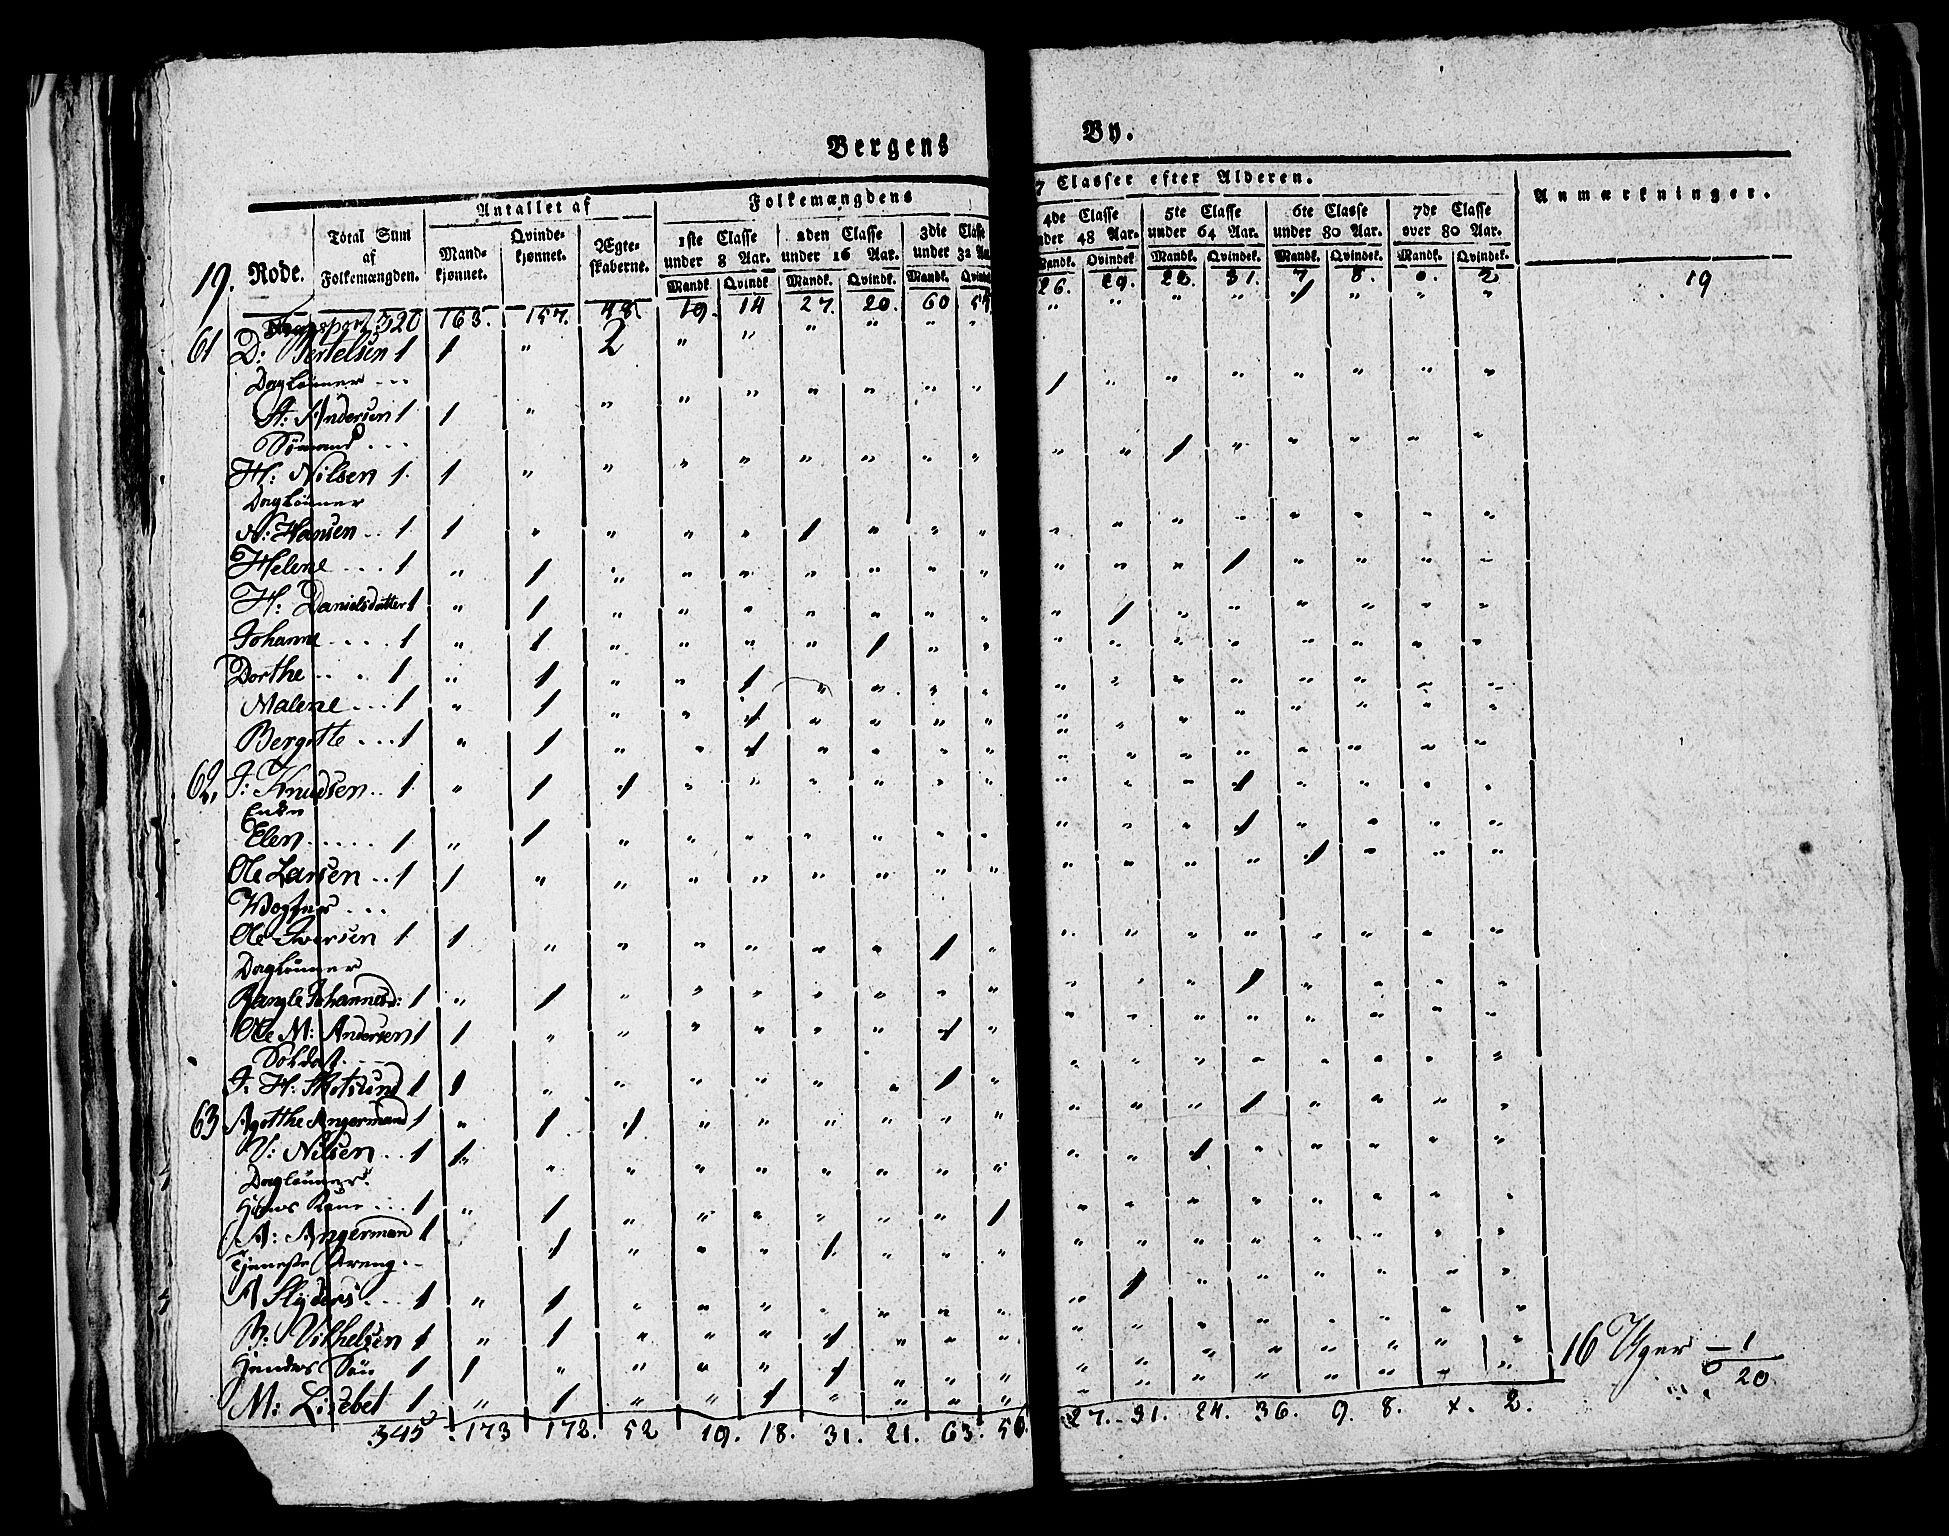 Bergens By.
19. Rode. Total Sum af Folkemængden. Antallet af Mandkjønnet. Qvindekjønnet. Ægteskaberne. Folkemængdens 7 Classer efter Alderen. Anmærkninger.
1ste Classe under 8 Aar. 2den Classe under 16 Aar. 3die Classe under 32 Aar. 4de Classe under 48 Aar. 5te Classe under 64 Aar. 6te Classe under 80 Aar. 7de Classe over 80 Aar.
Mandk. Qvindk. Mandk. Qvindk. Mandk. Qvindk. Mandk. Qvindek. Mandk. Qvindek. Mandk. Qvindek. Mandk. Qvindek.
Transport 320 163. 157. 48. 19. 14 27. 20. 60 26. 29. 31. 7 8. 2 19
61 D: Bertelsen 1 1 " 2 " " " " " " " " " " 1 " " "
Daglønner ...
A: Andersen 1 1 " " " " " " " " 1 " " " " " " "
Sømand ...
H: Nilsen 1. 1 " " " " " " " " " " 1 " " " " "
Daglønner
N: Hansen .. 1 1 " " " " 1 " " " " " " " " " " "
Helene ... 1 " 1 " " " " " " " " " " 1 " " " "
H: Danielsdatter 1 " 1 " " " " " " " " 1 " " " " " "
Johanne .... 1 " 1 " " " " 1 " " " " " " " " " "
Dorthe ... 1 " 1 " " 1 " " " " " " " " " " " "
Malene ... 1 " 1 " " 1 " " " " " " " " " " " "
Bergitte ... 1 " 1 " " 1 " " " " " " " " " " " "
62, J: Knudsen .. 1 " 1 1 " " " " " " " " " 1 " " " "
Enke
Elen ..... 1 " 1 " " " " " " " " " " 1 " " " "
Ole Larsen .. 1 1 " " " " " " " " " " " " 1 " " "
Ole Iversen 1 1 " " " " " " 1 " " " " " " " " "
Daglønner
Rangle Johannesd: 1 " 1 " " " " " " " " " " 1 " " " "
Ole M: Andersen 1 1 " " " " " " 1 " " " " " " " " "
Soldat
J. H: Skotsund 1 1 " " " " " " 1 " " " " " " " " "
63 Agotthe Angermand 1 " 1 1 " " " " " " " " " 1 " " " "
J: Nilsen .. 1 1 " " " " " " " " " " 1 " " " " "
Daglønner.
Hans Kone ... 1 " 1 " " " " " " 1 " " " " " " " "
A: Angerman 1 1 " " " 1 " " " " " " " " " " "
Tjeneste Dreng ..
A Slyders ... 1 " 1 " " " " " " " " 1 " " " " " "
B: Vilhelsen 1 " 1 " " " 1 " " " " " " " " " " "
Hendes Søn 1 1 " " " " 1 " " " " " " " " " " "
M: Lisebet 1 " 1 " " 1 " " " " " " " " " " " "
16 Uger — 1
20
345 173 172. 52 19. 18. 31. 21. 63. 56. 27. 31. 24. 36. 9. 8. 2.